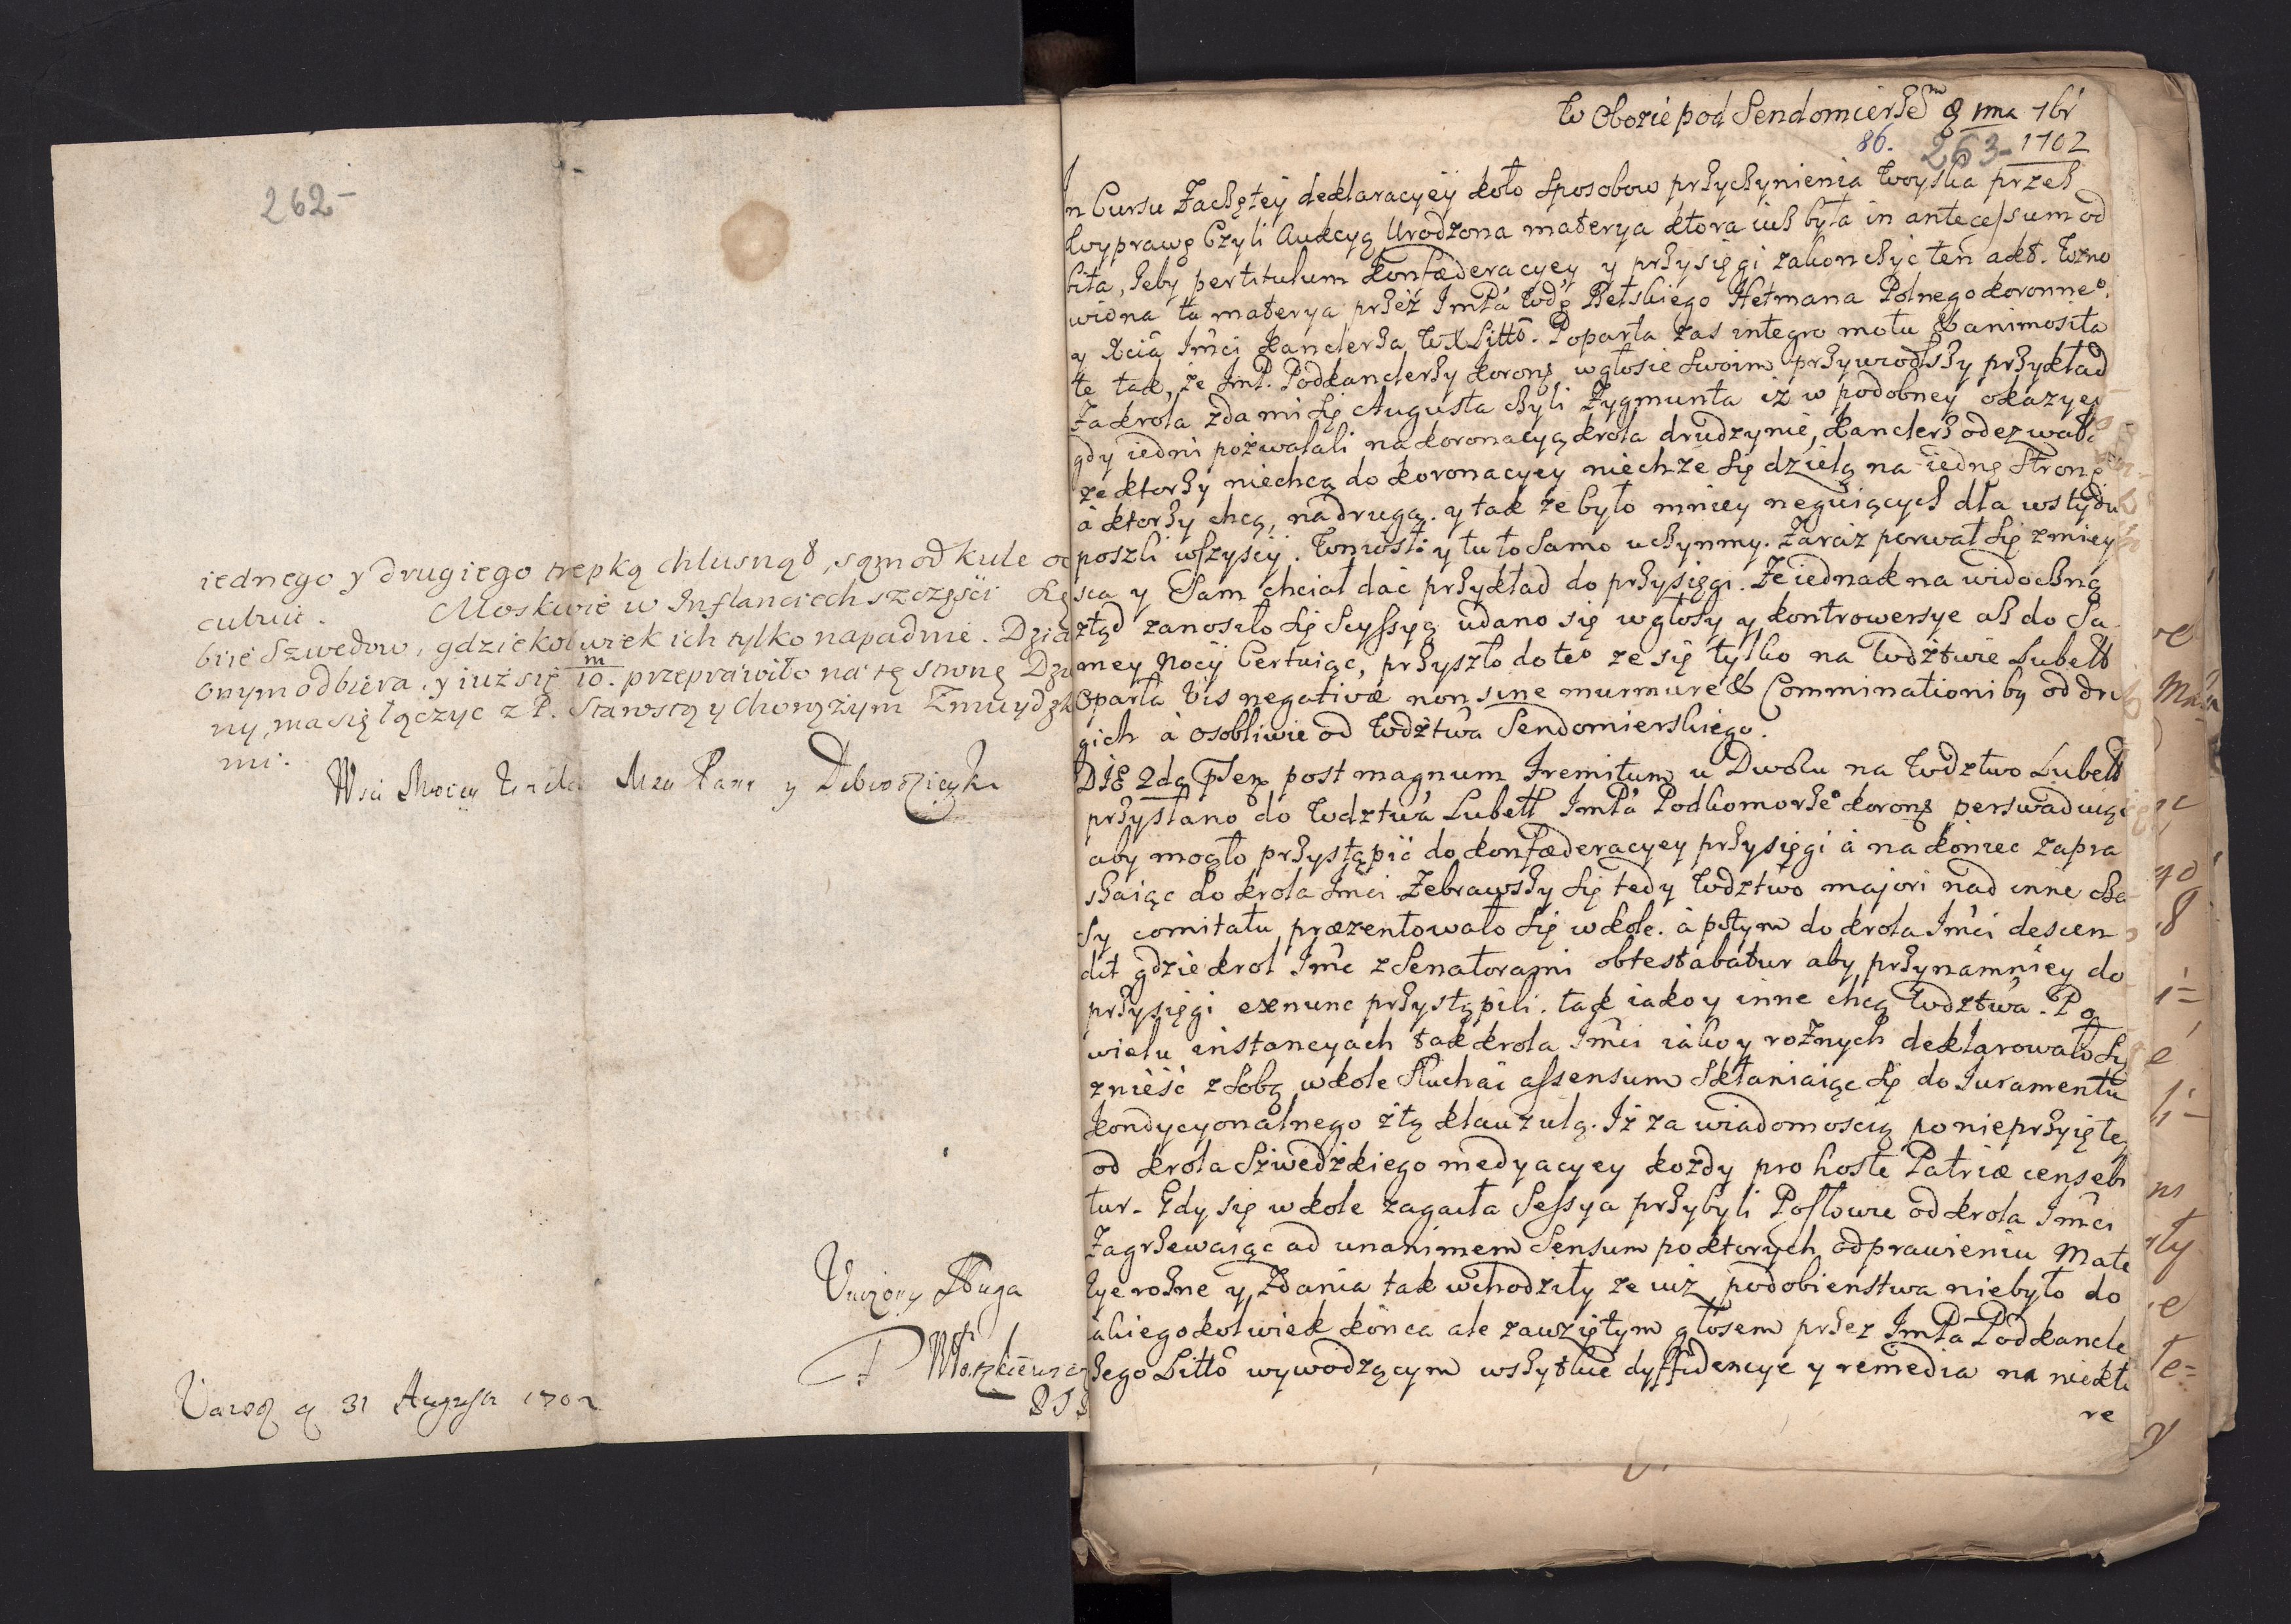 262-
iednego y drugiego trepką chlusnął, sam od kule oc
cubuit. Moskwie w Inflanciech szczęści Się
biie Szwedow, gdziekolwiek ich tylko napadnie. Dział
onym odbiera, y iuż się 10.m przeprawiło na tę stronę Dzwi
ny, ma się łączyc z P. Starostą y Chorążym Zmuydzki
mi.
Mem Panu y Dobrodzieyki
Unizony Sługa
Varsą 31 Augusta 1702
W Obozie pod Sendomierze~m 1ma 7br
86. 263- 1702
In Cursu Zachętey deklaracyey koło sposobow przyczynienia Woyska przez
Wyprawę Czyli Aukcyą Urodzona materya ktora iusz była in antecessum od
bita, zeby per titulum konfœderacyey y przysięgi zakonczyc ten akt. Wzno
wiona ta materya przez ImPa Wdę Bełskiego Hetmana Polnego koronneo.
y Xcia Imci kanclerza WXLitto. Poparta zas integro motu & animosita
te tak, ze ImP. Podkanclerzy koronę w głosie swoim przywiodszy przykład
Za krola zda mi się Augusta czyli Zygmunta iz w podobney okazyey
gdy iedni pozwalali na koronacyą krola drudzy nie, kanclerz odezwał
ze ktorzy niechcą do koronacyey niechze się dzielą na iednę stronę
à ktorzy chcą, na drugą. y tak ze było mniey neguiących dla wstydu
poszli wszyscy. Wniosł: y tu to samo uczynmy. Zaraz porwał się z miey
sca y sam chciał dac przykład do przysięgi. Ze iednak na widoczną
ztąd zanosiło się scyssyą udano się w głosy y kontrowersye asz do sa
mey nocy Certuiąc, przyszło do teo ze się tylko na Wdztwie Lubelt
oparła vis negativæ non sine murmure & Comminationibq od dru
gich à osobliwie od Wdztwa Sendomierskiego.
DIE 2da Psen post magnum fremitum u Dworu na Wdztwo Lubelt
przysłano do Wdztwa Lubelt ImPa Podkomorzeo koronę perswaduiąc
aby mogło przystąpić do konfœderacyey przysięgi à na koniec zapra
szaiąc do krola Imci Zebrawszy się tedy Wdztwo majori nad inne cza
sy comitatu præzentowało się w kole. à potym do krola Imci descen
dit gdzie krol Imc z Senatorami obtestabatur aby przynamniey do
przysięgi exnunc przystąpili. tak iako y inne chcą Wdztwa. Po
wielu instancyach tak krola Imci iako y roznych deklarowało się
znieść z sobą w kole słuchai assensum skłaniaiąc się do Iuramentu
kondycyonalnego z tą klauzulą. Iż za wiadomoscią po nieprzyiętey
od krola Szwedzkiego medyacyey kozdy pro hoste Patriæ censebi
tur. Gdy się w kole zagaiła Sessya przybyli Posłowie od krola Imci
Zagrzewaiąc ad unanimem Sensum po ktorych odprawieniu Mate
rye rozne y Zdania tak wchodziły ze iuz podobienstwa niebyło do
iakiegokolwiek konca ale zawziętym głosem przez ImPa Podkancle
rzego Litto wywodzącym wszytkie dyffidencye y remedia na niekto
re